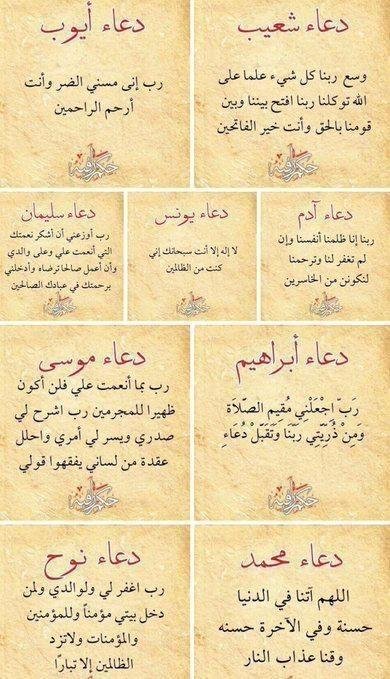 دعاء شعيب
وسع ربنا كل شيء علما على
الله توكلنا ربنا افتح بيننا وبين
قومنا بالحق وأنت خير الفاتحين
دعاء أيوب
رب إنى مسني الضر وأنت
أرحم الراحمين
دعاء آدم
ربنا إنا ظلمنا أنفسنا وإن
لم تغفر لنا وترحمنا
لنكونن من الخاسرين
دعاء يونس
لا إله إلا أنت سبحانك إني
كنت من الظالمين
دعاء سليمان
رب أوزعني أن أشكر نعمتك
التي أنعمت علي وعلى والدي
وأن أعمل صالحا ترضاه وأدخلني
برحمتك في عبادك الصالحين
دعاء أبراهيم
رَبِّ اجْعَلْنِي مُقِيمَ الصَّلاَةِ
وَمِنْ ذُرِّيَّتِي رَبَّنَا وَتَقَبَّلْ دُعَاءِ
دعاء موسى
رب بما أنعمت علي فلن أكون
ظهيرا للمجرمين رب اشرح لي
صدري ويسر لي أمري واحلل
عقدة من لساني يفقهوا قولي
دعاء محمد
اللهم آتنا في الدنيا
حسنة وفي الآخرة حسنه
وقنا عذاب النار
دعاء نوح
رب اغفر لي ولوالدي ولمن
دخل بيتي مؤمناً وللمؤمنين
والمؤمنات ولاتزد
الظالمين إلا تبارًا